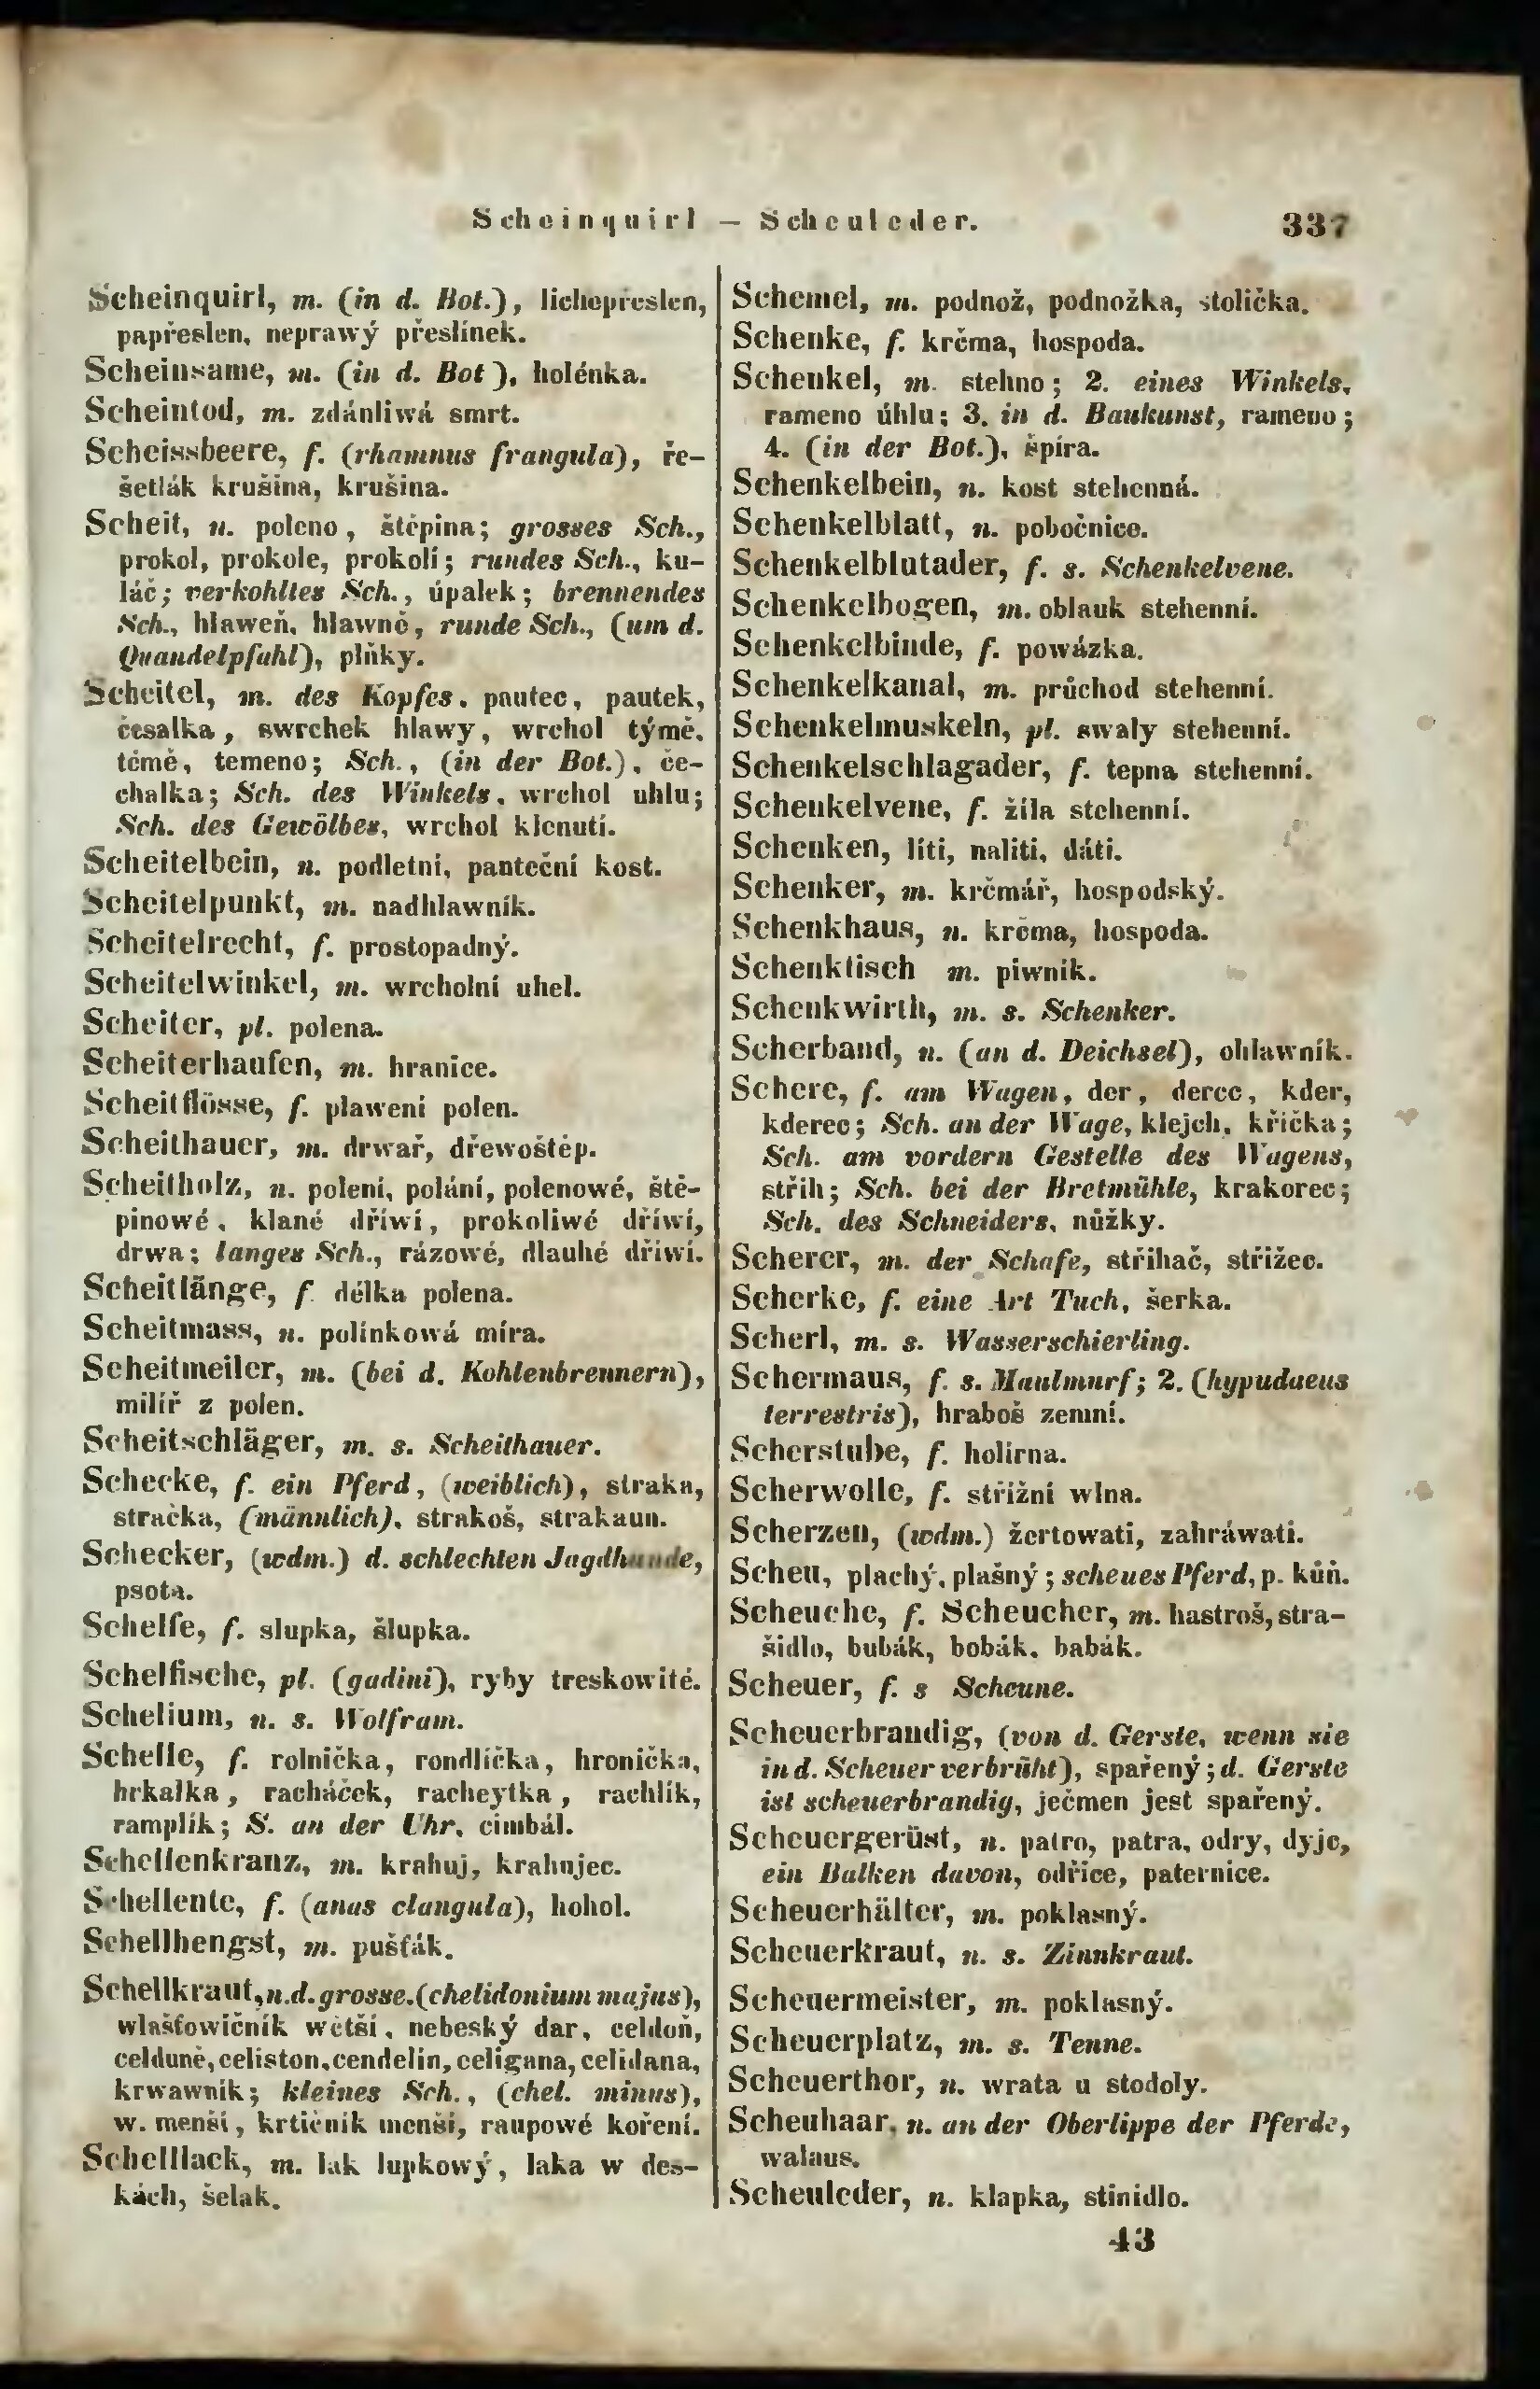 Scheinquirl — Scheuleder.
337
Scheinquirl, m. (in d. Bot.), lichopřeslen,
papřeslen, neprawý přeslínek.
Scheinsame, m. (in d. Bot), holénka.
Scheintod, m. zdánliwá smrt.
Scheissbeere, f. (rhamnus frangula), ře-
šetlák krušina, krušina.
Scheit, n. poleno, štěpina; grosses Sch.,
prokol, prokole, prokolí; rundes Sch., ku-
láč; verkohltes Sch., úpalek; brennendes
Sch., hlaweň, hlawně, runde Sch., (um d.
Quandelpfahl), plňky.
Scheitel, m. des Kopfes, pautec, pautek,
česalka, swrchek hlawy, wrchol týmě,
témě, temeno; Sch., (in der Bot.), če-
chalka; Sch. des Winkels, wrchol uhlu;
Sch. des Gewölbes, wrchol klenutí.
Scheitelbein, n. podletní, panteční kost.
Scheitelpunkt, m. nadhlawník.
Scheitelrecht, f. prostopadný.
Scheitelwinkel, m. wrcholní uhel.
Scheiter, pl. polena.
Scheiterhaufen, m. hranice.
Scheitflösse, f. plawení polen.
Scheithauer, m. drwař, dřewoštěp.
Scheitholz, n. polení, polání, polenowé, ště-
pinowé, klané dříwí, prokoliwé dříwí,
drwa; langes Sch., rázowé, dlauhé dříwí.
Scheitlänge, f. délka polena.
Scheitmass, n. polínkowá míra.
Scheitmeiler, m. (bei d. Kohlenbrennern),
milíř z polen.
Scheitschläger, m. s. Scheithauer.
Schecke, f. ein Pferd, (weiblich), straka,
stračka, (männlich), strakoš, strakaun.
Schecker, (wdm.) d. schlechten Jagdhunde,
psota.
Schelfe, f. slupka, šlupka.
Schelfische, pl. (gadini), ryby treskowité.
Schelium, n. s. Wolfram.
Schelle, f. rolnička, rondlíčka, hronička,
hrkalka, racháček, racheytka, rachlík,
ramplík; S. an der Uhr, cimbál.
Schellenkranz, m. krahuj, krahujec.
Schellente, f. (anas clangula), hohol.
Schellhengst, m. pušťák.
Schellkraut, n. d. grosse. (chelidonium majus),
wlašťowičník wětší, nebeský dar, celdoň,
celduně, celiston, cendelin, celigana, celidana,
krwawník; kleines Sch., (chel. minus),
w. menší, krtičník menší, raupowé koření.
Schelllack, m. lak lupkowý, laka w des-
kách, šelak.
Schemel, m. podnož, podnožka, stolička.
Schenke, f. krčma, hospoda.
Schenkel, m. stehno; 2. eines Winkels,
rameno úhlu; 3. in d. Baukunst, rameno;
4. (in der Bot.), špíra.
Schenkelbein, n. kost stehenná.
Schenkelblatt, n. pobočnice.
Schenkelblutader, f. s. Schenkelvene.
Schenkelbogen, m. oblauk stehenní.
Schenkelbinde, f. powázka.
Schenkelkanal, m. průchod stehenní.
Schenkelmuskeln, pl. swaly stehenní.
Schenkelschlagader, f. tepna stehenní.
Schenkelvene, f. žíla stehenní.
Schenken, líti, naliti, dáti.
Schenker, m. krčmář, hospodský.
Schenkhaus, n. krčma, hospoda.
Schenktisch m. piwník.
Schenkwirth, m. s. Schenker.
Scherband, n. (an d. Deichsel), ohlawník.
Schere, f. am Wagen, der, derec, kder,
kderec; Sch. an der Wage, klejch, křička;
Sch. am vordern Gestelle des Wagens,
střih; Sch. bei der Bretmühle, krakorec;
Sch. des Schneiders, nůžky.
Scherer, m. der Schafe, střihač, střižec.
Scherke, f. eine Art Tuch, šerka.
Scherl, m. s. Wasserschierling.
Schermaus, f. s. Maulwurf; 2. (hypudaeus
terrestris), hraboš zemní.
Scherstube, f. holírna.
Scherwolle, f. střižní wlna.
Scherzen, (wdm.) žertowati, zahráwati.
Scheu, plachý, plašný; scheues Pferd, p. kůň.
Scheuche, f. Scheucher, m. hastroš, stra-
šidlo, bubák, bobák, babák.
Scheuer, f. s Scheune.
Scheuerbrandig, (von d. Gerste, wenn sie
in d. Scheuer verbrüht), spařený; d. Gerste
ist scheuerbrandig, ječmen jest spařený.
Scheuergerüst, n. patro, patra, odry, dyje,
ein Balken davon, odřice, paternice.
Scheuerhälter, m. poklasný.
Scheuerkraut, n. s. Zinnkraut.
Scheuermeister, m. poklasný.
Scheuerplatz, m. s. Tenne.
Scheuerthor, n. wrata u stodoly.
Scheuhaar, n. an der Oberlippe der Pferde,
walaus.
Scheuleder, n. klapka, stinidlo.
43